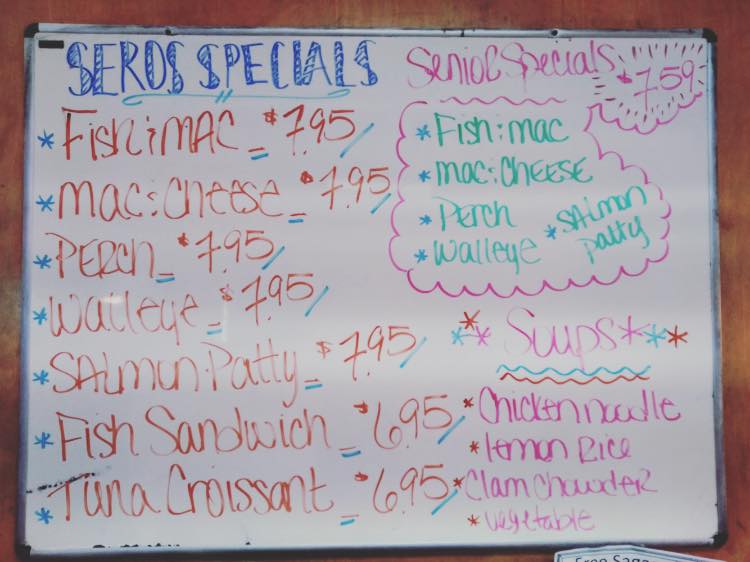 SEROS SPECIALS
* Fish & MAC - $7.95
* Mac & Cheese - $7.95
* PERCH - $7.95
* Walleye - $7.95
* SAlmon Patty - $7.95
* Fish Sandwich - $6.95
* Tuna Croissant - $6.95
Senior Specials $7.59
* Fish & mac
* mac & CHEESE
* Perch
* Walleye
* SAlmon
Patty
Soups
* Chicken noodle
* lemon Rice
* Clam Chowder
* vegetable